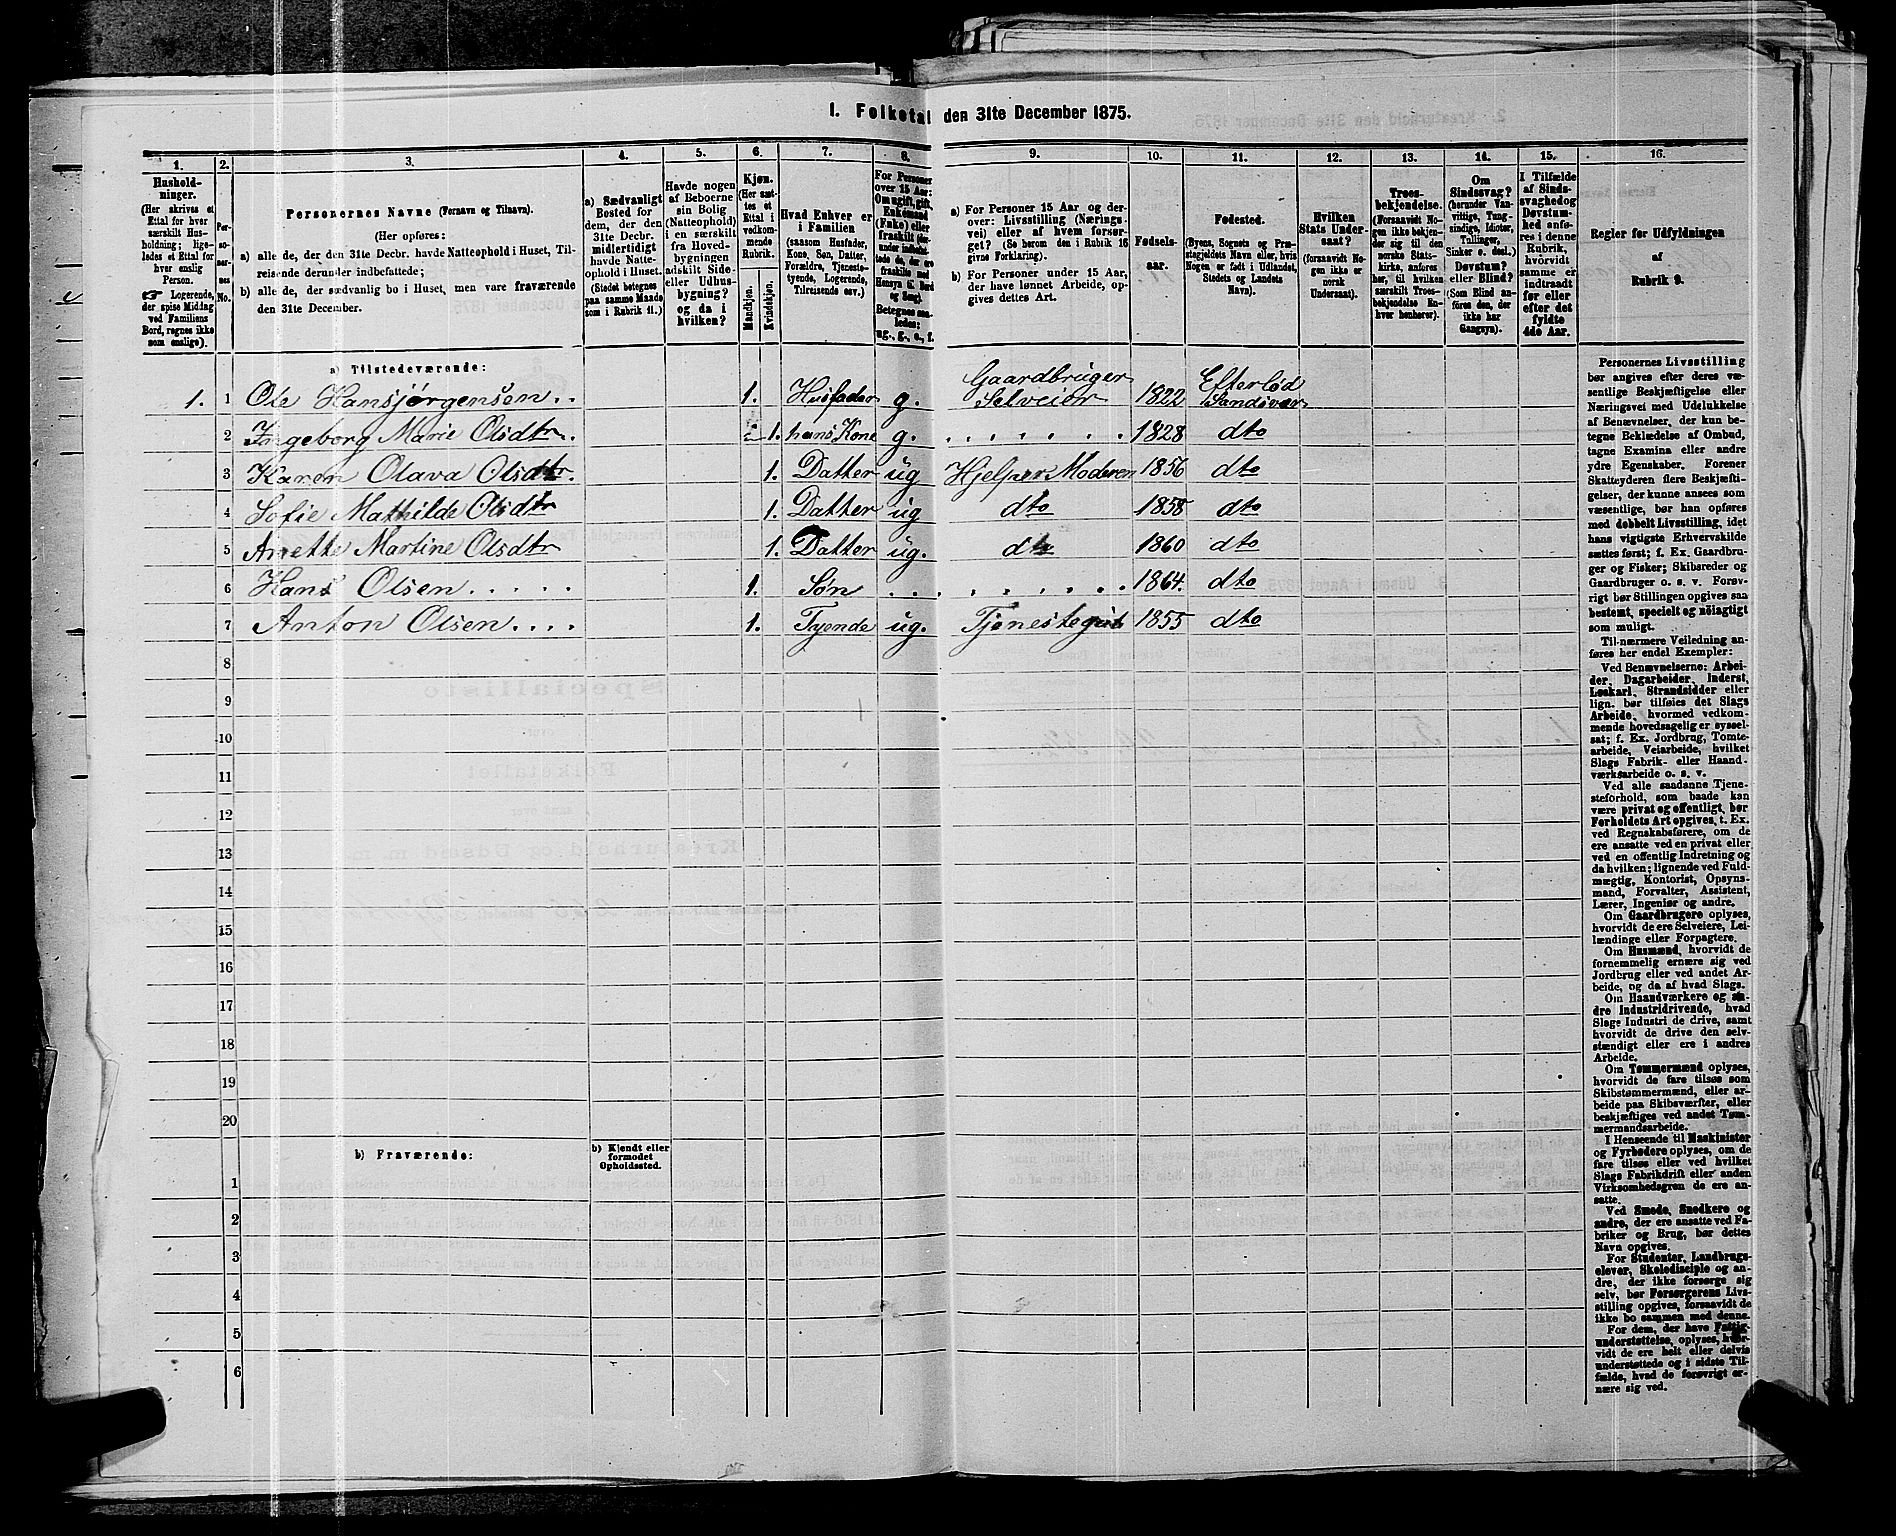 1. Folketal den 31te December 1875.
1. 2. 3. 4. 5. 6. 7. 8. 9. 10. 11. 12. 13. 14. 15. 16.
Hushold-
ninger.
(Her skrives et
Ettal for hver
særskilt Hus-
holdning; lige-
ledes et Ettal for
hver enslig
Person.
☞ Logerende,
der spise Middag
ved Familiens
Bord, regnes ikke
som enslige).
Per-
so-
ner-
nes
No.
Personernes Navne (Fornavn og Tilnavn).
(Her opføres:
a) alle de, der den 31te Decbr. havde Natteophold i Huset, Til-
reisende derunder indbefattede;
b) alle de, der sædvanlig bo i Huset, men vare fraværende
den 31te December.
a) Sædvanligt
Bosted for
dem, der den
31te Decbr.
midlertidigt
havde Natte-
ophold i Huset.
(Stedet betegnes
paa samme Maade
som i Rubrik 11.)
Havde nogen
af Beboerne
sin Bolig
(Natteophold)
i en særskilt
fra Hoved-
bygningen
adskilt Side-
eller Udhus-
bygning?
og da i
hvilken?
Kjøn.
(Her sæt-
tes et
Ettal i
vedkom-
mende
Rubrik.
Mandkjøn.
Kvindekjøn.
Hvad Enhver er
i Familien
(saasom Husfader,
Kone, Søn, Datter,
Forældre, Tjeneste-
tyende, Logerende,
Tilreisende osv.)
For Personer
over 15 Aar:
Om ugift, gift,
Enkemand
(Enke) eller
fraskilt
Betegnes saa-
ledes:
ug., g., e., f.
a) For Personer 15 Aar og der-
over: Livsstilling (Nærings-
vei) eller af hvem forsør-
get? (Se herom den i Rubrik 16
givne Forklaring).
b) For Personer under 15 Aar,
der have lønnet Arbeide, op-
gives dettes Art.
Fødsels-
aar.
Fødested.
(Byens, Sognets og Præ-
stegjeldets Navn eller, hvis
Nogen er født i Udlandet,
Stedets og Landets
Navn).
Hvilken
Stats Under-
saat?
(forsaavidt No-
gen ikke er
norsk
Undersaat).
Troes-
bekjendelse.
(Forsaavidt No-
gen ikke bekjen-
der sig til den
norske Stats-
kirke, anføres
her, til hvilken
særskilt Troes-
bekjendelse En-
hver henhører).
Om
Sindssvag?
(herunder Van-
vittige, Tung-
sindige, Idioter,
Tullinger,
Sinker o. desl.)
Døvstum?
eller Blind?
(Som Blind an-
føres den, der
ikke har
Gangsyn).
I Tilfælde
af Sinds-
svaghed og
Døvstum-
hed anfø-
res i denne
Rubrik,
hvorvidt
samme er
indtraadt
før eller
efter det
fyldte
4de Aar.
Regler for Udfyldningen
af
Rubrik 9.
a) Tilstedeværende:
1. 1 Ole Hansjørgensen.. 1. Husfader g. Gaardbruger Selveier 1822 Efterlød Sandsvær
2 Ingeborg Marie Olsdtr. 1. hans Kone g. . . . . . . 1828 dto
3 Karen Olava Olsdtr. 1. Datter ug Hjelper Moderen 1856 dto
4 Sofie Mathilde Olsdtr 1. Datter ug dto 1858 dto
5 Anette Martine Olsdtr 1. Datter ug. dto 1860 dto
6 Hans Olsen..... 1. Søn . . . . . . . 1864. dto
7 Anton Olsen.... 1. Tyende ug. Tjenestegut 1855 dto
8
9
10
11
12
13
14
15
16
17
18
19
20
b) Fraværende:
b) Kjendt eller
formodet
Opholdssted.
1
2
3
4
5
6
Personernes Livsstilling
bør angives efter deres væ-
sentlige Beskjæftigelse eller
Næringsvei med Udelukkelse
af Benævnelser, der kun be-
tegne Beklædelse af Ombud,
tagne Examina eller andre
ydre Egenskaber. Forener
Skatteyderen flere Beskjæfti-
gelser, der kunne ansees som
væsentlige, bør han opføres
med dobbelt Livsstilling, idet
hans vigtigste Erhvervskilde
sættes først; f. Ex. Gaardbru-
ger og Fisker; Skibsreder og
Gaardbruger o. s. v. Forøv-
rigt bør Stillingen opgives saa
bestemt, specielt og nøiagtigt
som muligt.
Til nærmere Veiledning an-
føres her endel Exempler:
Ved Benævnelserne: Arbei-
der, Dagarbeider, Inderst,
Løskarl, Strandsidder eller
lign. bør tilføies det Slags
Arbeide, hvormed vedkom-
mende hovedsagelig er syssel-
sat; f. Ex. Jordbrug, Tomte-
arbeide, Veiarbeide, hvilket
Slags Fabrik- eller Haand-
værksarbeide o. s. v.
Ved alle saadanne Tjene-
steforhold, som baade kan
være privat og offentligt, bør
Forholdets Art opgives, t. Ex.
ved Regnskabsførere, om de
ere ansatte ved en privat eller
ved en offentlig Indretning og
da hvilken; lignende ved Fuld-
mægtig, Kontorist, Opsyns-
mand, Forvalter, Assistent,
Lærer, Ingeniør og andre.
Om Gaardbrugere oplyses,
hvorvidt de ere Selveiere, Lei-
lændinge eller Forpagtere.
Om Husmænd, hvorvidt de
fornemmelig ernære sig ved
Jordbrug eller ved andet Ar-
beide, og da af hvad Slags.
Om Haandværkere og an-
dre Industridrivende, hvad
Slags Industri de drive, samt
hvorvidt de drive den selv-
stændigt eller ere i andres
Arbeide.
Om Tømmermænd oplyses,
hvorvidt de fare tilsøs som
Skibstømmermænd, eller ar-
beide paa Skibsværfter, eller
beskjæftiges ved andet Tøm-
mermandsarbeide.
I Henseende til Maskinister
og Fyrbødere oplyses, om de
fare tilsøs eller ved hvilket
Slags Fabrikdrift eller anden
Virksomhedsgren de ere an-
satte.
Ved Smede, Snedkere og
andre, der ere ansatte ved Fa-
briker og Brug, bør dettes
Navn opgives.
For Studenter, Landbrugs-
elever, Skoledisciple og an-
dre, der ikke forsørge sig
selv, bør Forsørgerens Livs-
stilling opgives, forsaavidt de
ikke bo sammen med denne.
For dem, der have Fattig-
understøttelse, oplyses, hvor-
vidt de ere helt eller delvis
understøttede og i sidste Til-
fælde, hvad de forøvrigt er-
nære sig ved.